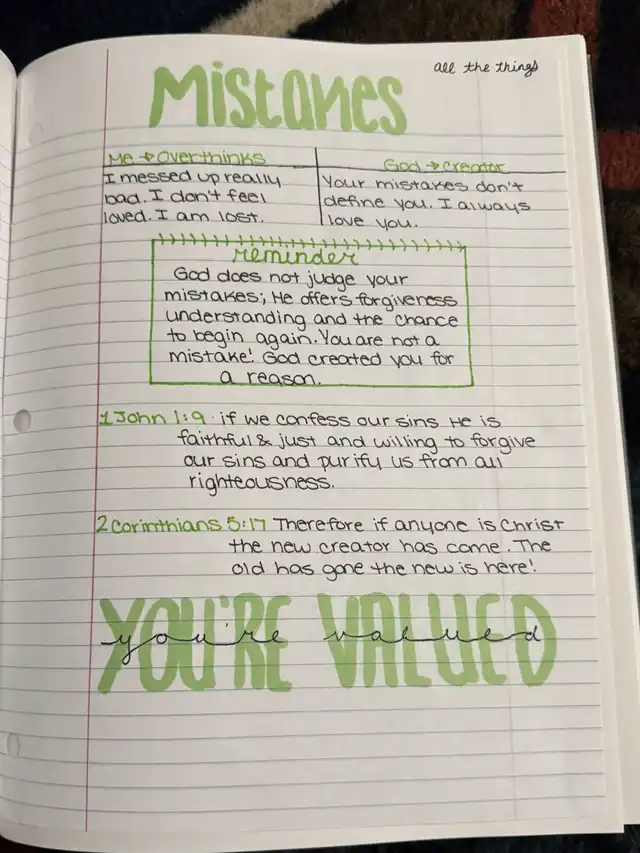 Mistakes
all the things
Me → Overthinks
I messed up really
bad. I don't feel
loved. I am lost.
God → Creator
Your mistakes don't
define you. I always
love you.
reminder
God does not judge your
mistakes; He offers forgiveness
understanding and the chance
to begin again. You are not a
mistake! God created you for
a reason.
1 John 1:9 if we confess our sins He is
faithful & just and willing to forgive
our sins and purify us from all
righteousness.
2 Corinthians 5:17 Therefore if anyone is Christ
the new creator has come. The
old has gone the new is here!
YOU'RE VALUED
you're valued